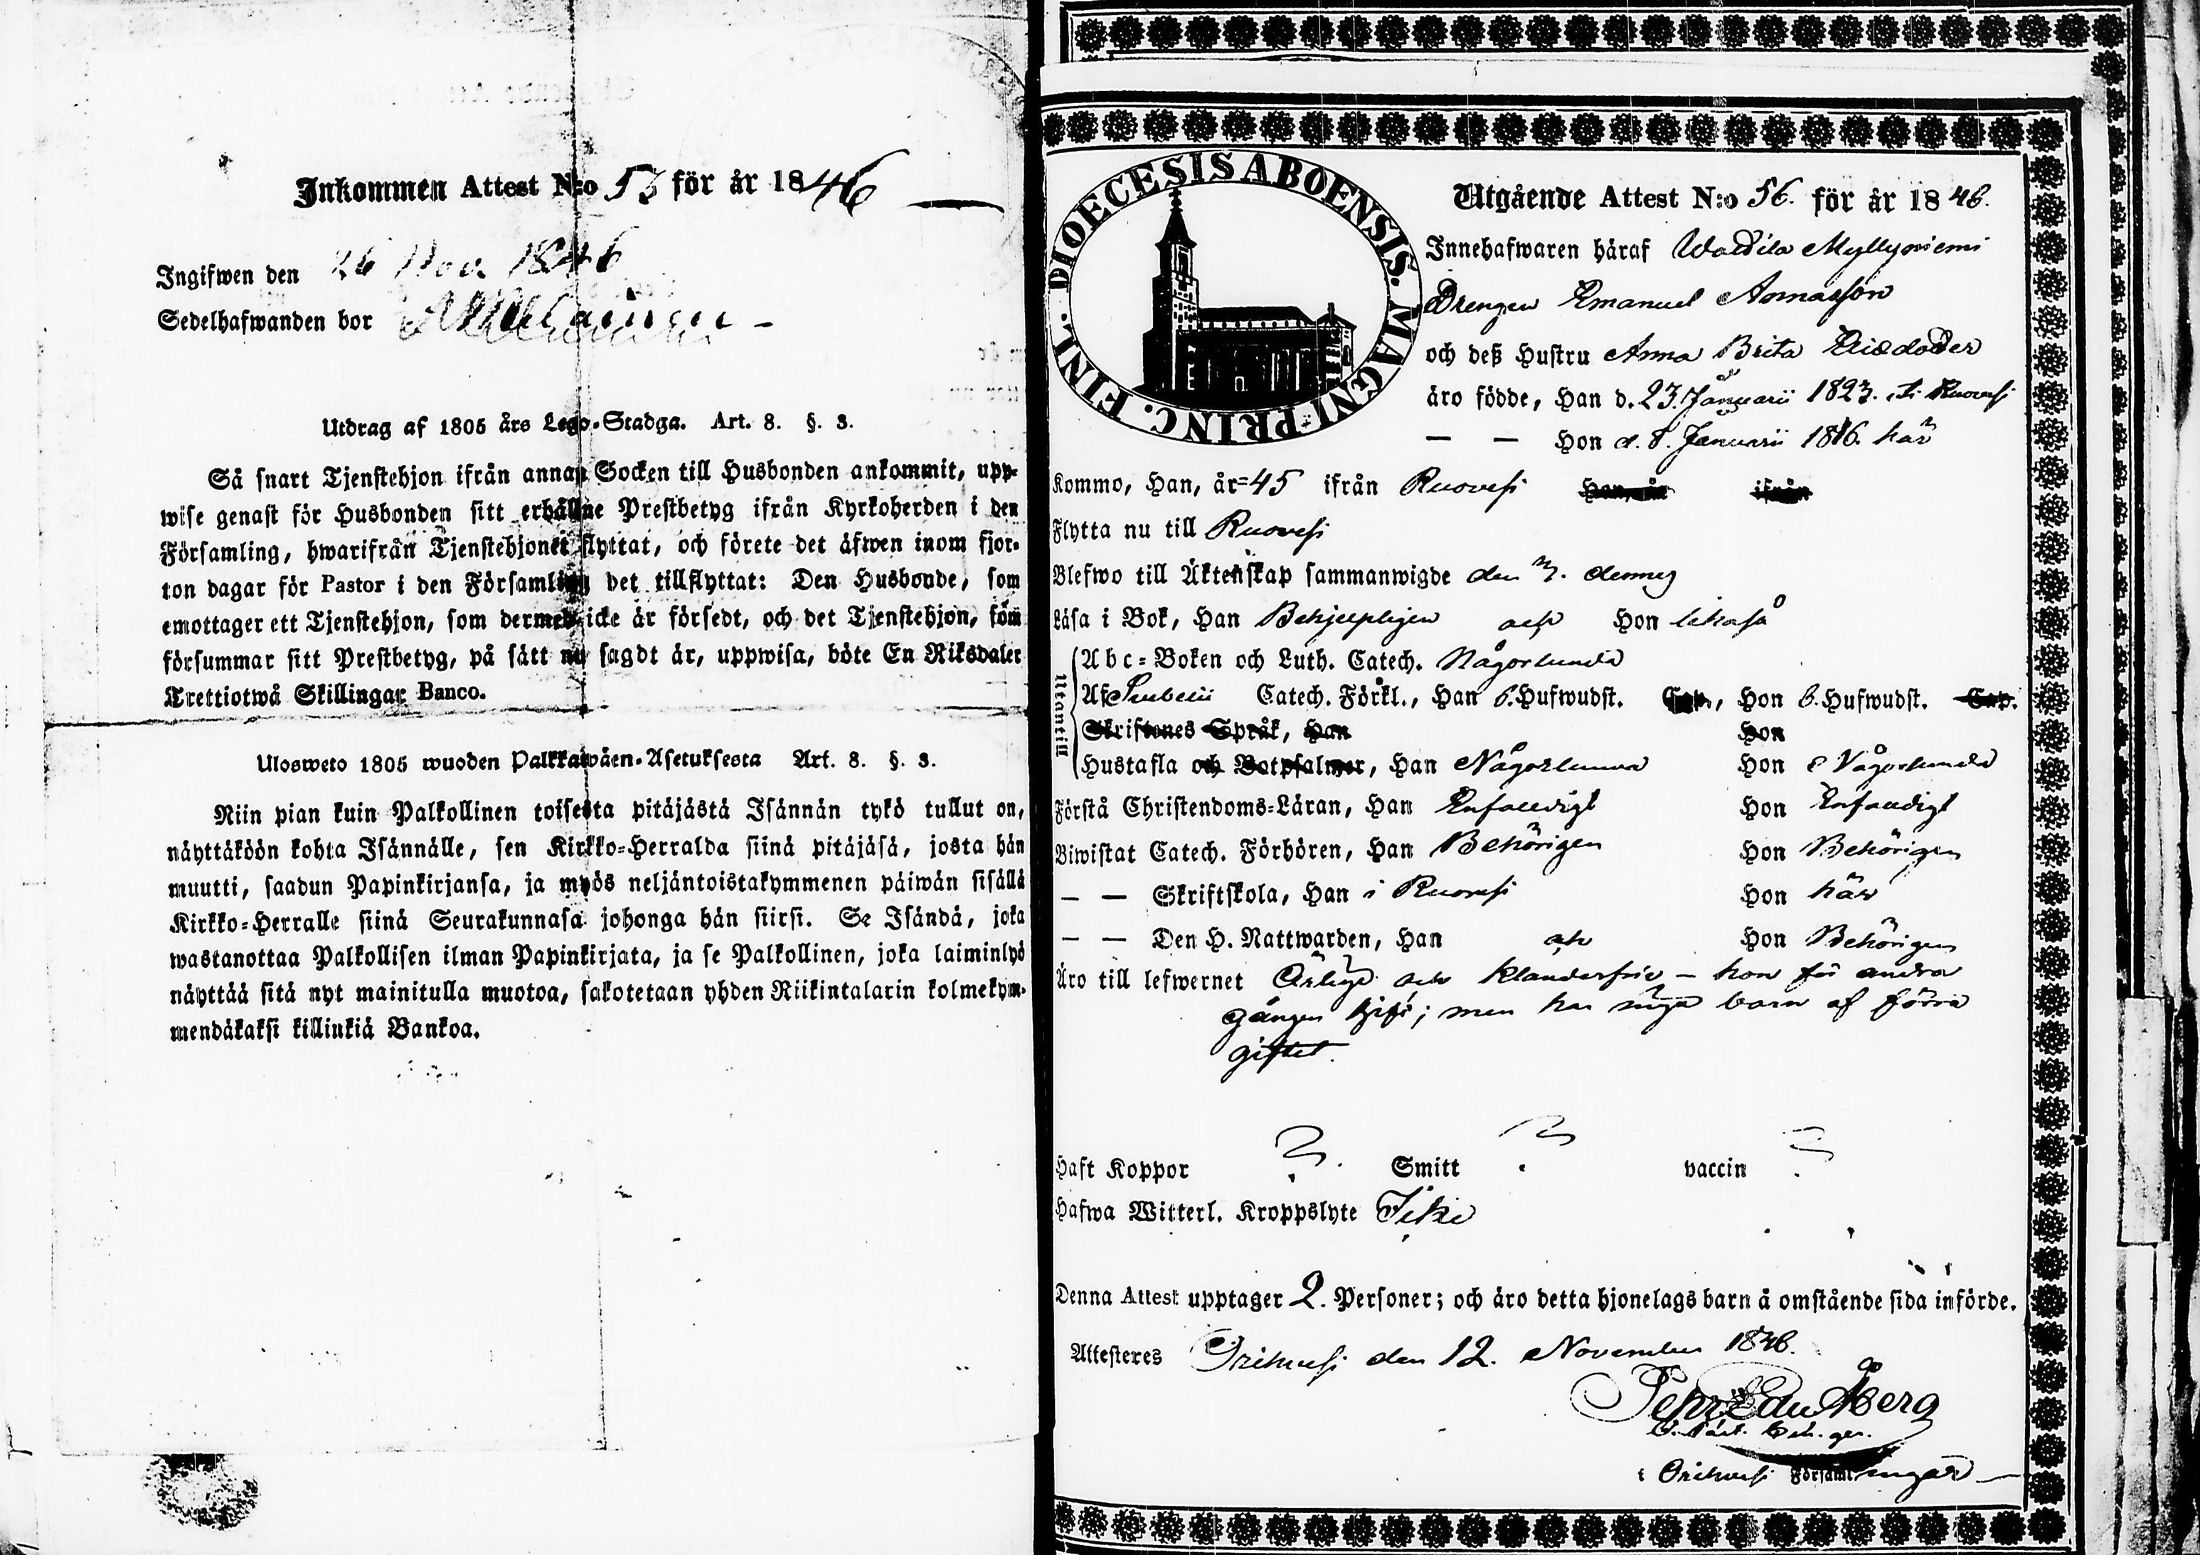 Inkommen Attest N:o 53 för år 1846
Ingifwen den 26 Nov. 1846
Sedelhafwanden bor
Utdrag af 1805 års Lego-Stadga. Art. 8. §. 3.
Så snart Tjenstehjon ifrån annan Socken till Husbonden ankommit, upp-
wise genast för Husbonden sitt erhållne Prestbetyg ifrån Kyrkoherden i den
Församling, hwarifrån Tjenstehjonet flyttat, och förete det äfwen inom fjor-
ton dagar för Pastor i den Församling det tillflyttat: Den Husbonde, som
emottager ett Tjenstehjon, som dermed icke är försedt, och det Tjenstehjon, som
försummar sitt Prestbetyg, på sätt nu sagdt är, uppwisa, böte En Riksdaler
Trettiotwå Skillingar Banco.
Ulosweto 1805 wuoden Palkkawäen-Asetuksesta Art. 8. §. 3.
Niin pian kuin Palkollinen toisesta pitäjästä Isännän tykö tullut on,
näyttäköön kohta Isännälle, sen Kirkko-Herralda siinä pitäjäsä, josta hän
muutti, saadun Papinkirjansa, ja myös neljäntoistakymmenen päiwän sisällä
Kirkko-Herralle siinä Seurakunnasa johonga hän siirsi. Se Isändä, joka
wastanottaa Palkollisen ilman Papinkirjata, ja se Palkollinen, joka laiminlyö
näyttää sitä nyt mainitulla muotoa, sakotetaan yhden Riikintalarin kolmekym-
mendäkaksi killinkiä Bankoa.
DIOECESIS ABOENSIS. MAGNI-PRINC. FINL.
Utgående Attest N:o 56. för år 1846.
Innehafwaren häraf Waldila Myllyniemi
Drengen Emanuel Annasson
och deß Hustru Anna Brita Ericsdotter
äro födde, Han d. 23. Januarii 1823. i Ruovesi
— — Hon d. 8. Januarii 1816. här
Kommo, Han, år 45 ifrån Ruovesi Han, år ifrån
Flytta nu till Ruovesi
Blefwo till Äktenskap sammanwigde den
Läsa i Bok, Han Behjelpligen och Hon likaså
Utantill
Abc-Boken och Luth. Catech. Någorlunda
Af Catech. Förkl., Han 6. Hufwudst. Cap., Hon 6. Hufwudst. Cap.
Skriftenes Språk, Han Hon
Hustafla och Botpsalmer, Han Någorlunda Hon Någorlunda
Förstå Christendoms-Läran, Han Enfaldigt Hon Enfaldigt
Biwistat Catech. Förhören, Han Behörigen Hon Behörigen
— — Skriftskola, Han i Ruovesi Hon här
— — Den H. Nattwarden, Han och Hon Behörigen
Äro till lefwernet Ärlige och klanderfrie – hon för andra
gången gift; men har inga barn af förra
giftet.
Haft Koppor ? Smitt ? vaccin ?
Hafwa Witterl. Kroppslyte Icke
Denna Attest upptager 2. Personer; och äro detta hjonelags barn å omstående sida införde.
Attesteres Orihvesi den 12. November 1846.
Pehr Edv Åberg
i Orihvesi Församlingar